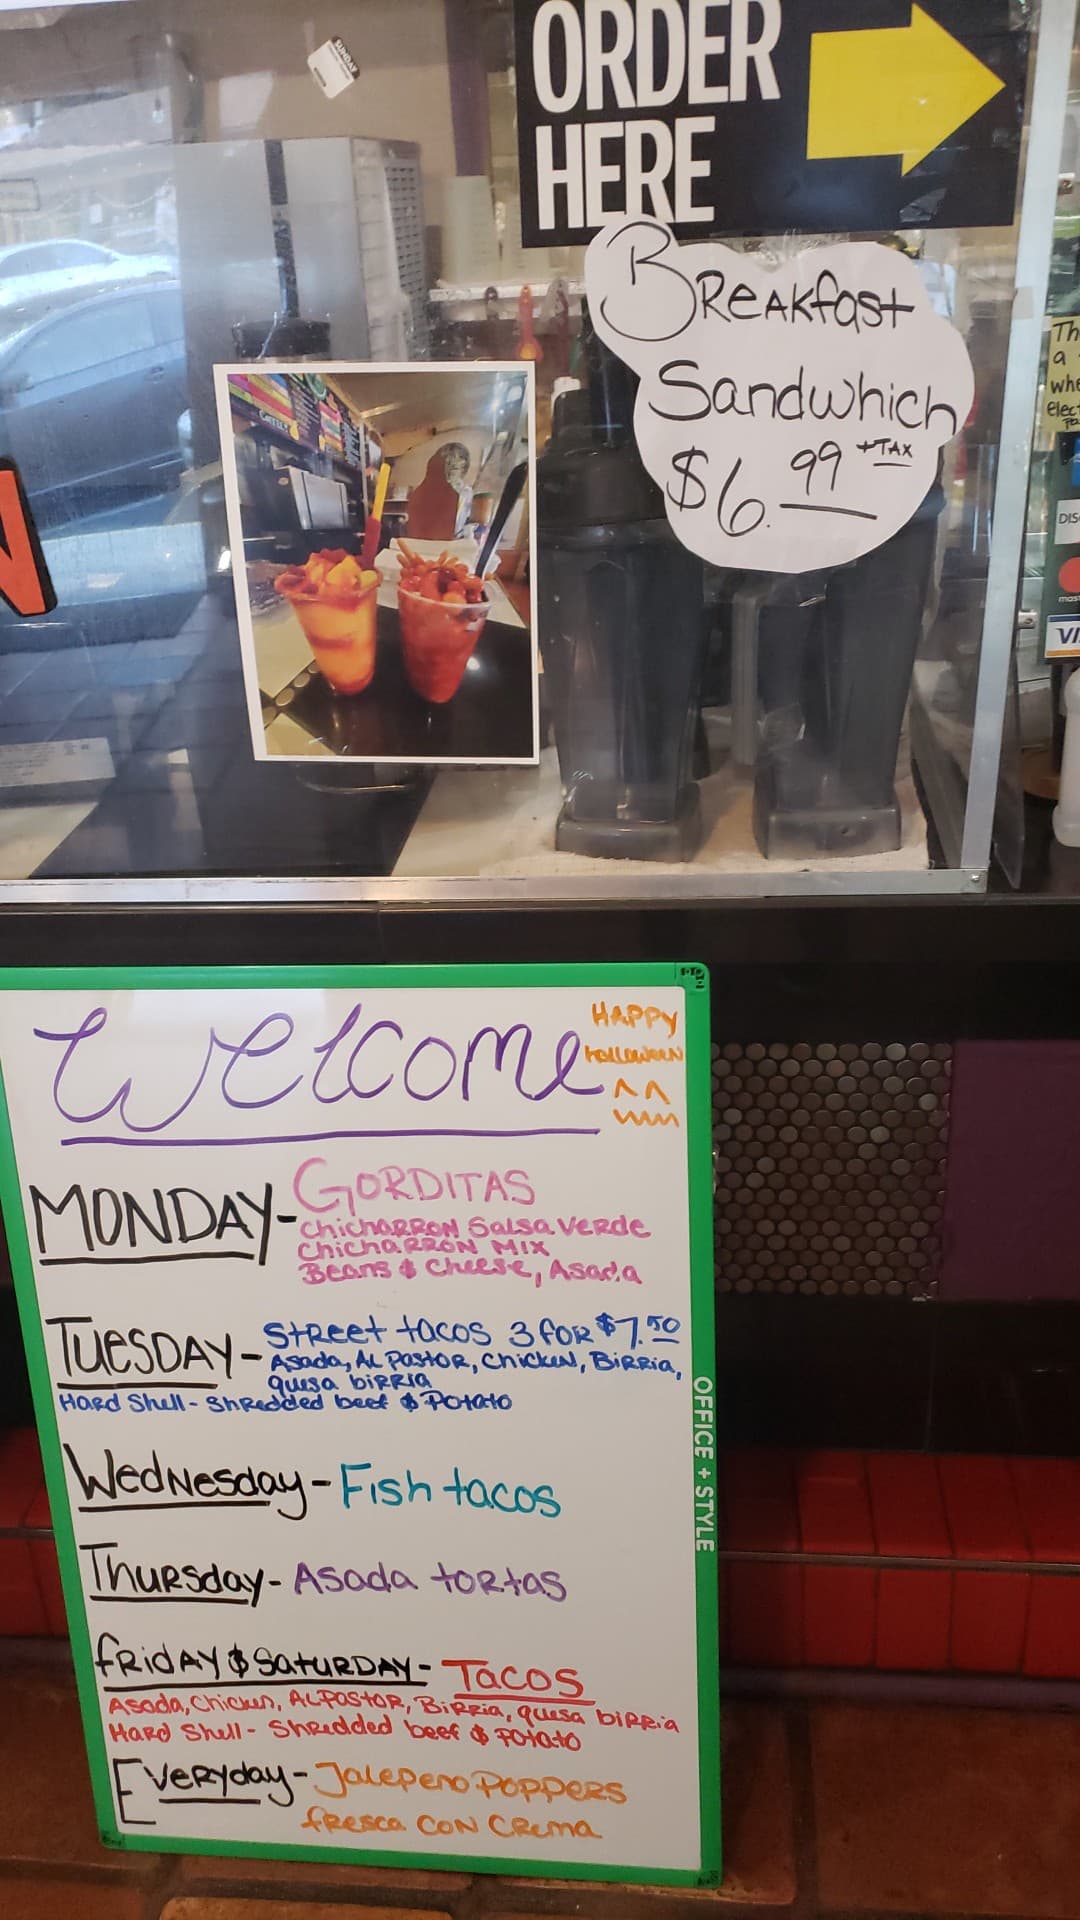 SUNDAY
ORDER
HERE
BREAKfast
Sandwhich
$6.99 +TAX
Th
a
whe
elec
DIS
mas
VI
N
Welcome
HAPPY
HALLOWEEN
MONDAY- GORDITAS
ChichaRRON Salsa VeRde
ChichaRRON MIX
Beans & Cheese, Asada
TUESDAY- StReet tacos 3 foR $7.50
Asada, AL PastoR, Chicken, BiRRia,
quesa biRRia
HaRd Shell- ShRedded beef & Potato
WedNesday- Fish tacos
ThuRsday- Asada toRtas
fRidAY & SatuRDAY- Tacos
Asada, Chicken, AL PastoR, BiRRia, quesa biRRia
HaRd Shell- ShRedded beef & Potato
EveRyday- Jalepeno PoppeRs
fResca CoN CRema
OFFICE + STYLE